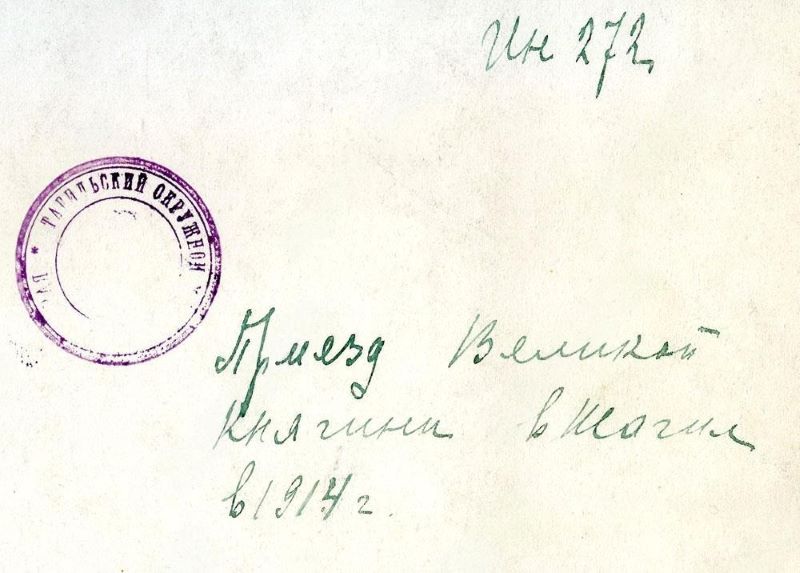 Ин 272
ТАГИЛЬСКИЙ ОКРУЖНОЙ
Приезд Великой
Княгини в Тагил
в 1914 г.